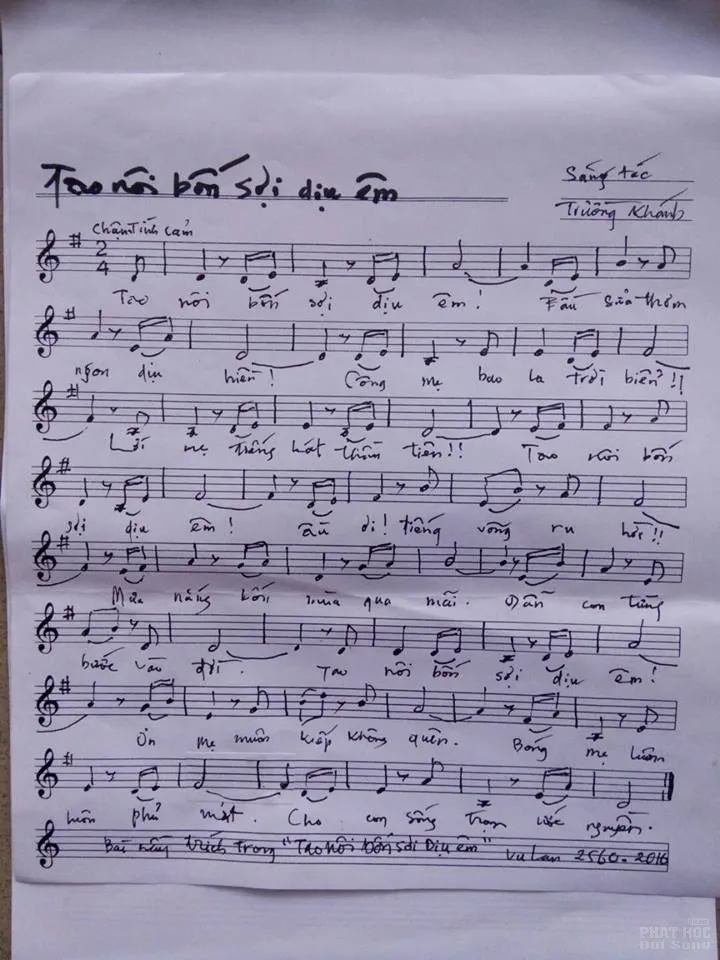 Tao nôi bốn sợi dịu êm
Sáng tác
Trường Khánh
Chậm Tình cảm
2
4
Tao nôi bốn sợi dịu êm! Bầu sữa thơm
ngon dịu hiền! Công mẹ bao la trời biển!!
Lời mẹ tiếng hát thần tiên!! Tao nôi bốn
sợi dịu êm! ầu ơi! tiếng võng ru hời!!
Mưa nắng bốn mùa qua mãi. Dẫn con từng
bước vào đời. Tao nôi bốn sợi dịu êm!
Ơn mẹ muôn kiếp không quên. Bóng mẹ luôn
luôn phủ mát. Cho con sống trọn ước nguyền.
Bài trích trong "Tao nôi bốn sợi Dịu êm" Vu Lan 2560-2016
PHẬT HỌC
Đời Sống